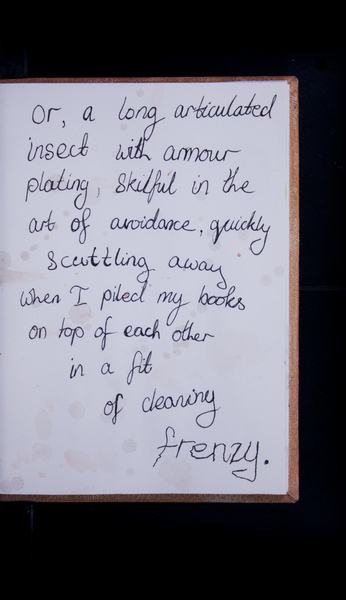 Or, a long articulated
insect with armour
plating, skilful in the
art of avoidance, quickly
scuttling away
when I piled my books
on top of each other
in a fit
of cleaning
frenzy.